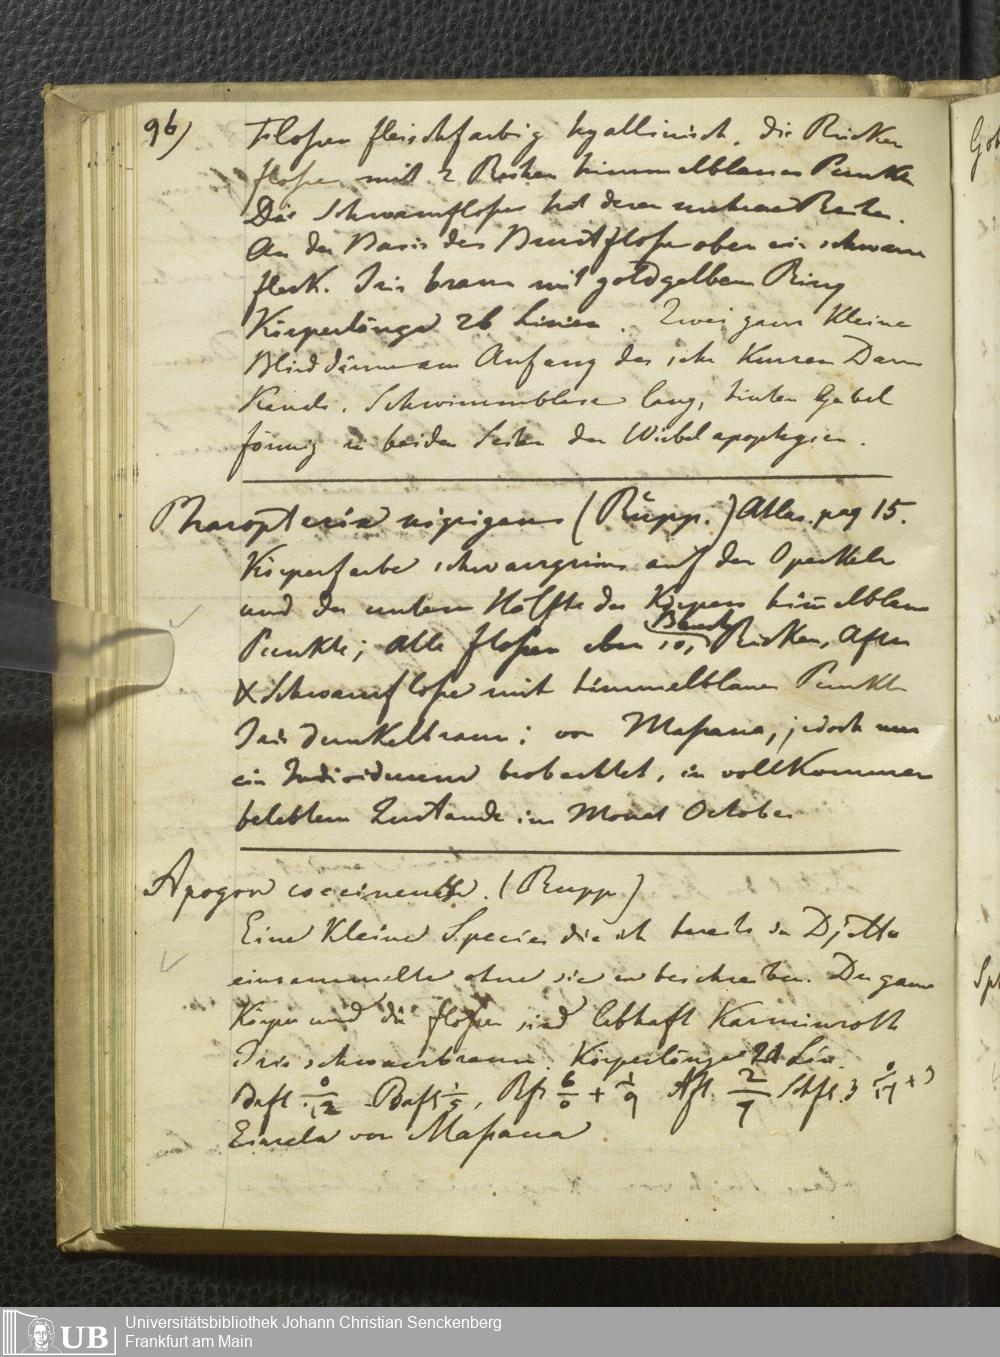 96)
Flossen fleischfarbig hyallinisch. die Rücken
flosse mit 2 Reihen himmelblauer Punkte
Die Schwanzflosse hat deren mehrere Reihen.
An der Basis der Brustflosse oben ein schwarzer
fleck. Iris braun mit goldgelbem Ring
Körperlänge 26 Linien. Zwei ganz Kleine
Blinddärme am Anfang des sehr Kurzen Darm
Kanals. Schwimmblase lang, hinten Gabel
förmig zu beiden Seiten der Wirbel apophysen.
Pharopterix nigricans (Rüpp.) Atlas. pag 15.
Körperfarbe schwarzgrün auf den Operkeln
und der untern Hälfte des Körpers him̅elblaue
Punkte; Alle flossen eben so, Rücken, After
Bauch
& Schwanzflosse mit himmelblauen Punkten
Iris dunkelbraun; von Massaua, jedoch nur
ein Individuum beobachtet, in vollkommen
belebtem Zustande im Monat October
Apogon coccineus. (Rupp)
Eine Kleine Species die ich bereits in Djetta
einsammelte ohne sie zu beschreiben. Der ganze
Körper und die flossen sind lebhaft Karminroth
Iris schwarzbraun. Körperlänge 21 Lin.
Brfl. 0/12 Bafl 1/5, Rfl 6/0 + 1/9 Afl. 2/9 Schfl. 3 0/17 + 3
Einzeln von Massaua
Gob
Sph
UB
Universitätsbibliothek Johann Christian Senckenberg
Frankfurt am Main